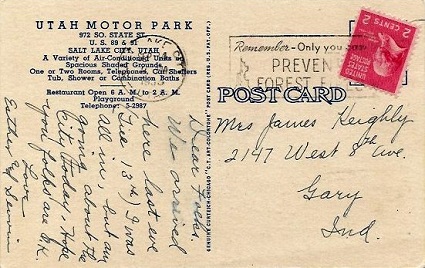 UTAH MOTOR PARK
972 SO. STATE ST.
U. S. 89 & 91
SALT LAKE CITY, UTAH
A Variety of Air-Conditioned Units on
Spacious Shaded Grounds
One or Two Rooms, Telephones, Car Shelters
Tub, Shower or Combination Baths
Restaurant Open 6 A. M. to 2 A. M.
Playground
Telephone: 5-2987
Dear Folks.
We arrived
here last eve
(Tue. 13th) I was
all in, but am
going about the
City today. Hope
you folks are O.K.
Love
Esther &
GENUINE CURTEICH-CHICAGO "C. T. ART-COLORTONE" POST CARD (REG. U. S. PAT. OFF.)
Remember-Only you
PREVENT
FOREST
UNITED STATES POSTAGE
2 CENTS 2
POST CARD
Mrs James Keighly
2147 West 8th Ave.
Gary
Ind.